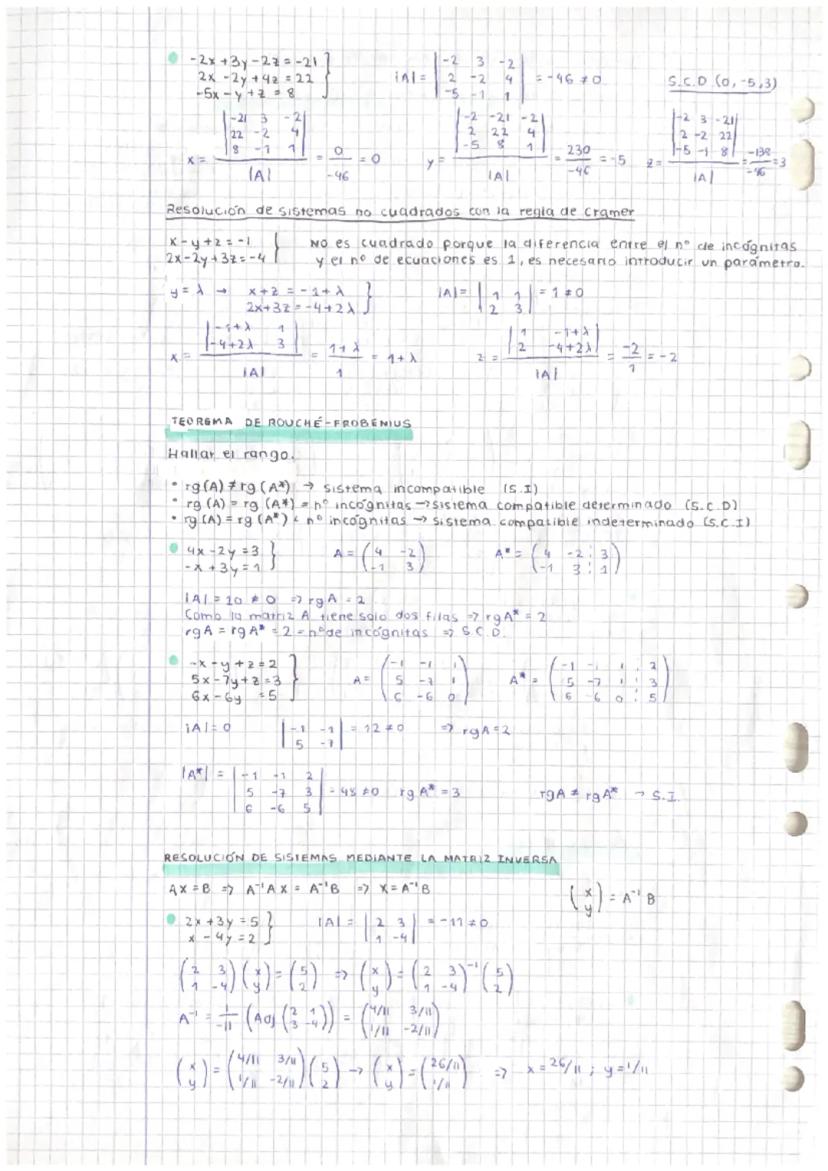 -2x + 3y - 2z = -21
2x - 2y + 4z = 22
-5x - y + z = 8
|A| = | -2 3 -2 | 2 -2 4 | -5 -1 1 | = -46 ≠ 0
S.C.D (0, -5, 3)
x = | -21 3 -2 | 22 -2 4 | 8 -1 1 | / |A| = 0/-46 = 0
y = | -2 -21 -2 | 2 22 4 | -5 8 1 | / |A| = 230/-46 = -5
z = | -2 3 -21 | 2 -2 22 | -5 -1 8 | / |A| = -138/-46 = 3
Resolución de sistemas no cuadrados con la regla de cramer
x - y + z = -1
2x - 2y + 3z = -4
No es cuadrado porque la diferencia entre el nº de incógnitas
y el nº de ecuaciones es 1, es necesario introducir un parámetro.
y = λ → x + z = -1 + λ
2x + 3z = -4 + 2λ
|A| = | 1 1 | 2 3 | = 1 ≠ 0
x = | -1+λ 1 | -4+2λ 3 | / |A| = 1+λ / 1 = 1+λ
z = | 1 -1+λ | 2 -4+2λ | / |A| = -2/1 = -2
TEOREMA DE ROUCHÉ-FROBENIUS
Hallar el rango.
• rg(A) ≠ rg(A*) → sistema incompatible (S.I)
• rg(A) = rg(A*) = nº incógnitas → sistema compatible determinado (S.C.D)
• rg(A) = rg(A*) < nº incógnitas → sistema compatible indeterminado (S.C.I)
4x - 2y = 3
-x + 3y = 1
A = ( 4 -2 | -1 3 )
A* = ( 4 -2 ⋮ 3 | -1 3 ⋮ 1 )
|A| = 10 ≠ 0 => rgA = 2
Como la matriz A tiene solo dos filas => rgA* = 2
rgA = rgA* = 2 = nº de incógnitas => S.C.D.
-x - y + z = 2
5x - 7y + z = 3
6x - 6y = 5
A = ( -1 -1 1 | 5 -7 1 | 6 -6 0 )
A* = ( -1 -1 1 ⋮ 2 | 5 -7 1 ⋮ 3 | 6 -6 0 ⋮ 5 )
|A| = 0
| -1 -1 | 5 -7 | = 12 ≠ 0 => rgA = 2
|A*| = | -1 -1 2 | 5 -7 3 | 6 -6 5 | = 48 ≠ 0 rgA* = 3
rgA ≠ rgA* → S.I.
RESOLUCIÓN DE SISTEMAS MEDIANTE LA MATRIZ INVERSA
AX = B => A⁻¹AX = A⁻¹B => X = A⁻¹B
(x y) = A⁻¹B
2x + 3y = 5
x - 4y = 2
|A| = | 2 3 | 1 -4 | = -11 ≠ 0
( 2 3 | 1 -4 ) (x y) = (5 2) => (x y) = ( 2 3 | 1 -4 )⁻¹ (5 2)
A⁻¹ = 1/-11 (Adj ( 2 1 | 3 -4 )) = ( 4/11 3/11 | 1/11 -2/11 )
(x y) = ( 4/11 3/11 | 1/11 -2/11 ) (5 2) → (x y) = (26/11 1/11) => x = 26/11 ; y = 1/11